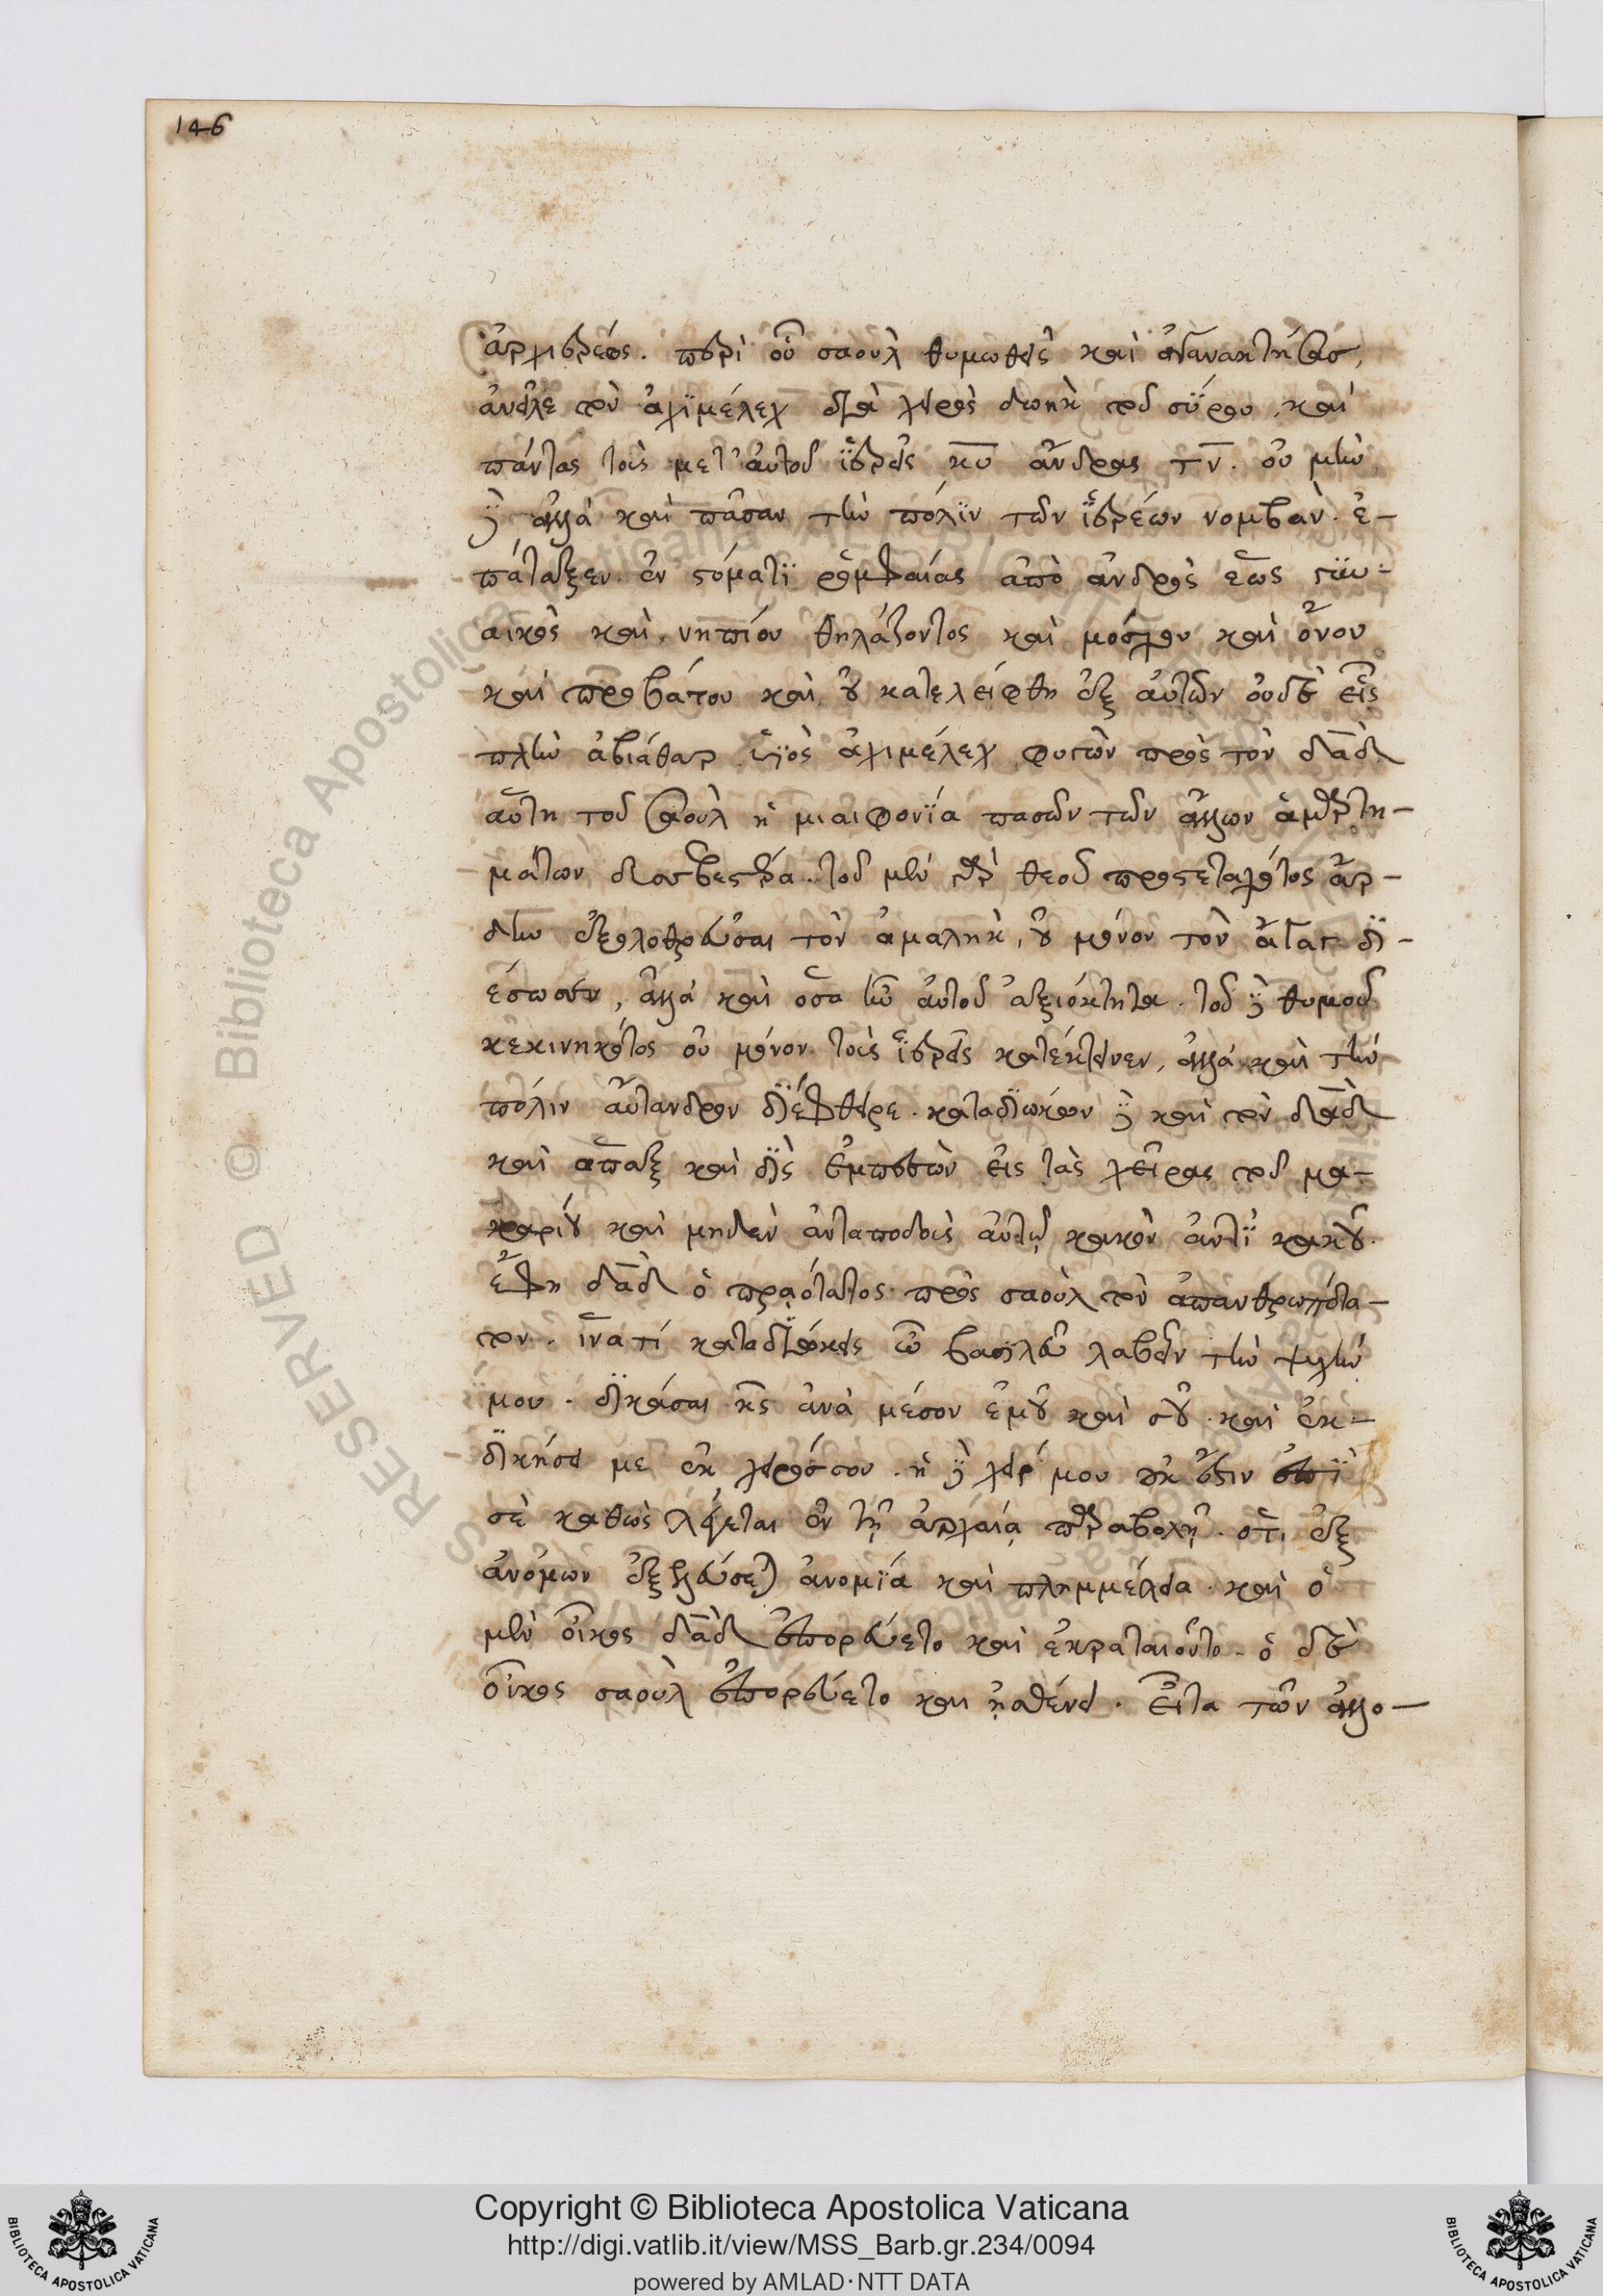 146
ἀρχιερέως. περὶ οὗ σαοὺλ θυμωθεὶς καὶ ἀγανακτήσας,
ἀνεῖλε τὸν ἀχϊμέλεχ διὰ χειρὸς δωὴκ τοῦ σύρου, καὶ
πάντας τοὺς μετ' αὐτοῦ ἱερεῖς κυ ἄνδρας τν. οὐ μὴν
δὲ ἀλλὰ καὶ πᾶσαν τὴν πόλϊν τῶν ἱερέων νομβὰν. ἐ-
πάταξεν ἐν στόματϊ ρομφαίας ἀπὸ ἀνδρὸς ἕως γυν-
αικὸς καὶ νηπίου θηλάζοντος καὶ μόσχου καὶ ὄνου
καὶ προβάτου καὶ οὐ κατελείφθη ἐξ αὐτῶν οὐδὲ εἷς
πλὴν ἀβιάθαρ υἱὸς ἀχιμέλεχ φυγὼν πρὸς τὸν δαδ
αὕτη τοῦ σαοὺλ ἡ μιαιφονΐα πασῶν τῶν ἄλλων ἁμαρτη-
μάτων δυσσεβεστέρα. τοῦ μὲν γὰρ θεοῦ προστεταχότος ἄρ-
δην ἐξολοθρεῦσαι τὸν ἀμαλὴκ, οὐ μόνον τὸν ἄγαγ δι-
έσωσεν, ἀλλὰ καὶ ὅσα ἦν αὐτοῦ ἀξιόκτητα. τοῦ δὲ θυμοῦ
κεκινηκότος οὐ μόνον τοὺς ἱερεῖς κατέκτεινεν, ἀλλὰ καὶ τὴν
πόλιν αὔτανδρον διέφθειρε. καταδιώκων δὲ καὶ τὸν δαδ
καὶ ἅπαξ καὶ δὶς ἐμπεσὼν εἰς τὰς χεῖρας τοῦ μα-
καρίου καὶ μηδὲν ἀνταποδοὺς αὐτῷ κακὸν ἀντΐ κακοῦ.
ἔφη δαδ ὁ πραότατος πρὸς σαοὺλ τὸν ἀπανθρωπότα-
τον. ἵνατί καταδιώκεις ὦ βασιλεῦ λαβεῖν τὴν ψυχὴν
μου. δικάσαι κς ἀνὰ μέσον ἐμοῦ καὶ σοῦ. καὶ ἐκ-
δικήσει με ἐκ χειρός σου. ἡ δὲ χείρ μου οὐκ ἔστιν ἐπῒ
σὲ καθὼς λέγεται ἐν τῇ ἀρχαίᾳ παραβολῇ. ὅτι ἐξ
ἀνόμων ἐξελεύσεται ἀνομΐα καὶ πλημμέλεια. καὶ ὁ
μὲν οἶκος δαδ ἐπορεύετο καὶ ἐκραταιοῦτο. ὁ δὲ
οἶκος σαοὺλ ἐπορεύετο καὶ ἠσθένει. εἶτα τῶν ἀλλο-
Copyright © Biblioteca Apostolica Vaticana
http://digi.vatlib.it/view/MSS_Barb.gr.234/0094
powered by AMLAD·NTT DATA
BIBLIOTECA APOSTOLICA VATICANA
BIBLIOTECA APOSTOLICA VATICANA